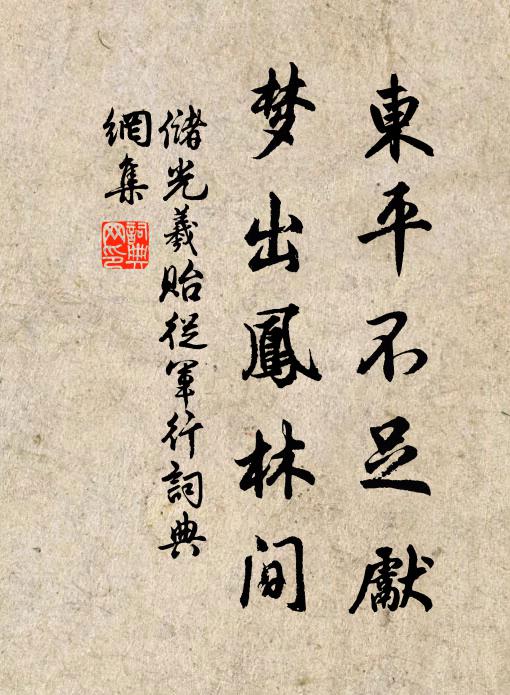 東平不足獻
梦出鳳林间
儲光羲貽從軍行詞典
網集
詞典
网印